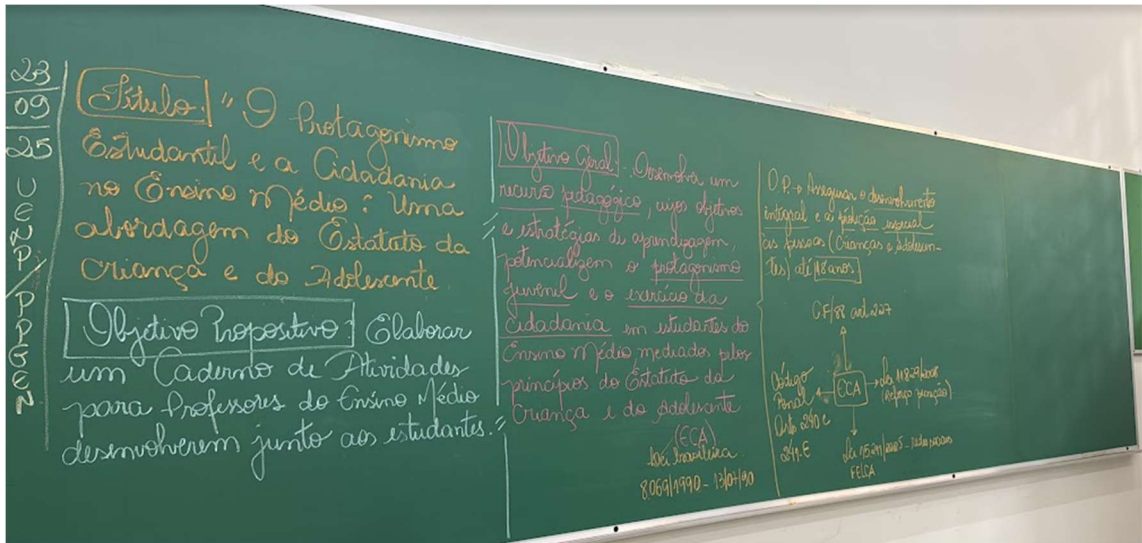 23/09/25 UENP/PPGEN
Título: "O Protagonismo
Estudantil e a Cidadania
no Ensino Médio: Uma
abordagem do Estatuto da
Criança e do Adolescente
Objetivo Propositivo: Elaborar
um Caderno de Atividades
para Professores do Ensino Médio
desenvolverem junto aos estudantes."
Objetivo Geral: Desenvolva um
recurso pedagógico, cujos objetivos
e estratégias de aprendizagem,
potencializem o protagonismo
juvenil e o exercício da
cidadania em estudantes do
Ensino Médio, mediados pelos
princípios do Estatuto da
Criança e do Adolescente
(ECA)
Lei brasileira
8.069/1990 - 13/07/90
O.P.→ Assegurar o desenvolvimento
integral e a proteção especial
às pessoas (Crianças e Adolescen-
tes) até 18 anos.
CF/88 art. 227
Código
Penal
Arts 240 e
241-E
ECA
Lei 11.829/2008
(Reforço proteção)
Lei 15.211/2025 - redes sociais
FELCA